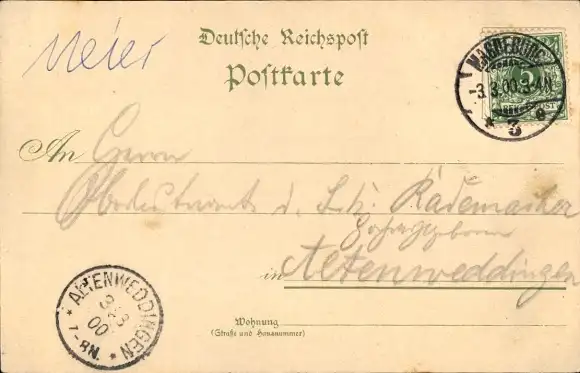 Meier
Deutsche Reichspost
Postkarte
MAGDEBURG
-3.3.00.3-4N.
* 3 e
An Herrn
Oberleutnant d. Rademacher
in Altenweddingen
* ALTENWEDDINGEN *
3/3
00
7-8N.
Wohnung
(Straße und Hausnummer)